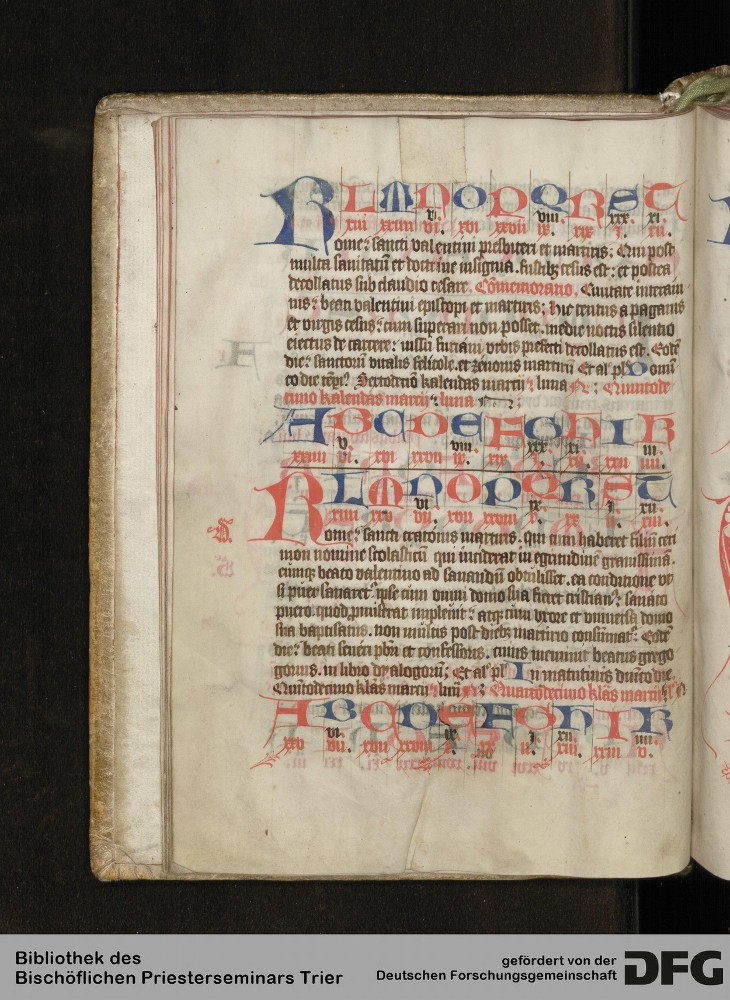 L M N O P Q R S T
vi. viii. xxx. xi.
Rome: sancti valentini presbiteri et martiris: Qui post
multa sanitatū et doctrine insignia. fustibꝫ cesus est: et postea
decollatus sub claudio cesare. Cōmemoratio. Ciuitate interam
nis: beati valentini episcopi et martiris: hic tentus a paganis
et virgis cesus: cum superari non posset. medie noctis silentio
eiectus de carcere: iussu furiani vrbis prefecti decollatus est. Eodē
die: sanctorū vitalis felicole. et zenonis martirū Et al pl
co die Sextodecio kalendas marcii luna Quintode
cimo kalendas marcii luna
A B C D E F G H I K
v. viii. xxx. xi. iii.
L M N O P Q R S T
vi ix. i. xii.
Rome: sancti cratonis martiris. qui cum haberet filiū ceri
mon nomine scolasticū qui inciderat in egritudinē grauissimā.
eumqꝫ beato valentino ad sanandū obtulisset. ea conditione vt
si puer sanaret ipse cum omni domo sua fieret cristian⁹: sanato
puero. quod promiserat impleuit: atqꝫ cum vxore et vniuersa domo
sua baptisatus. non multis post diebꝫ martirio consumat⁹. Eodē
die: beati seueri pbri et confessoris. cuius meminit beatus grego
gorius. in libro dyalogorū; Et al pl In matutinis
Quintodecimo klas marcii Quartodecimo klas marcii
A B C D E F G H I K
vi. ix. i. xii. iiii.
xxv vii. xvii xxviii x. xx ii. xiii. xxiii v.
Bibliothek des
Bischöflichen Priesterseminars Trier
gefördert von der
Deutschen Forschungsgemeinschaft DFG